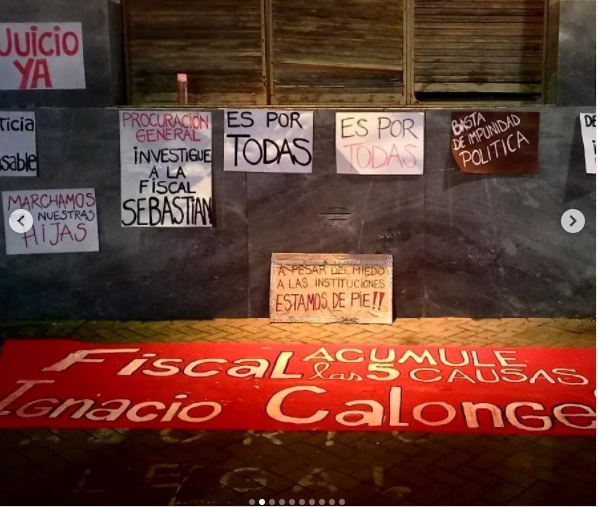 JUICIO
YA
ticia
sable
MARCHAMOS
NUESTRAS
HIJAS
PROCURACIÓN
GENERAL
INVESTIGUE
A LA
FISCAL
SEBASTIAN
ES POR
TODAS
ES POR
TODAS
BASTA
DE IMPUNIDAD
POLITICA
DE
A PESAR DEL MIEDO
A LAS INSTITUCIONES
ESTAMOS DE PIE!!
FISCAL ACUMULE
las 5 CAUSAS
IGNACIO CALONGE
LEGAL